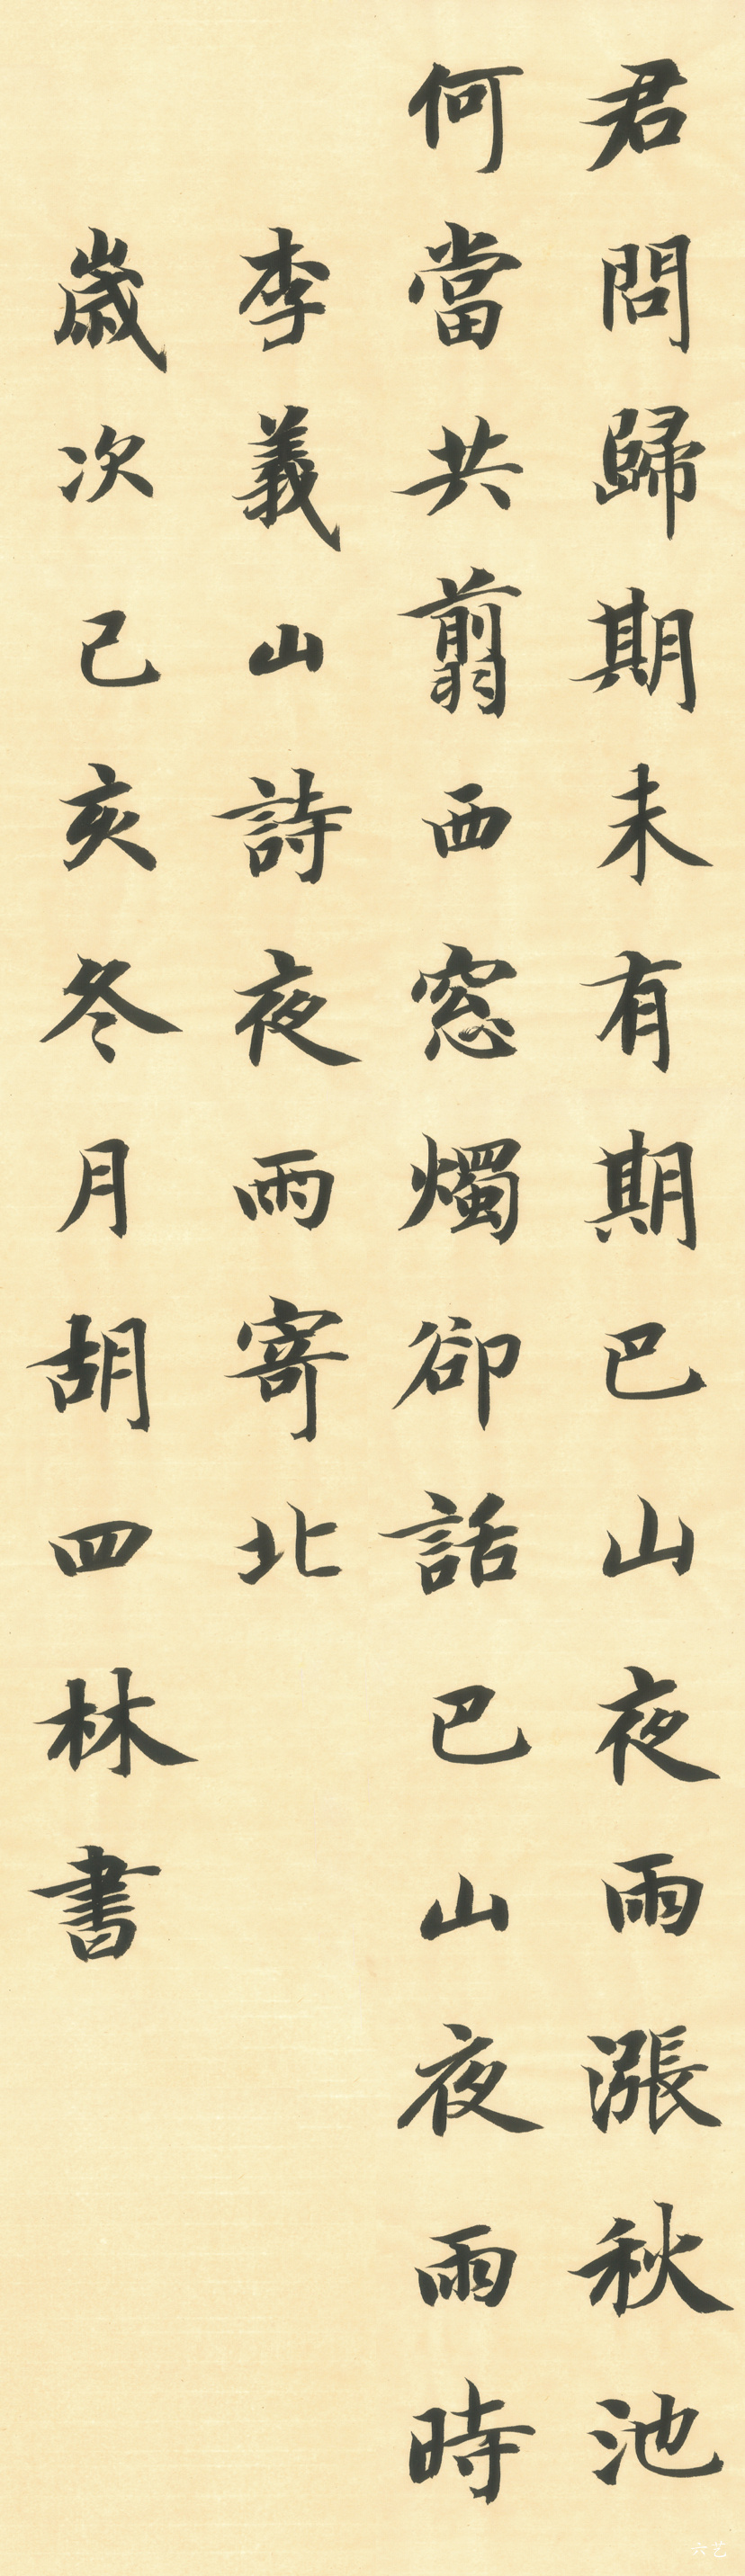 君問歸期未有期巴山夜雨漲秋池
何當共翦西窓燭卻話巴山夜雨時
李義山詩夜雨寄北
歲次己亥冬月胡四林書
六艺